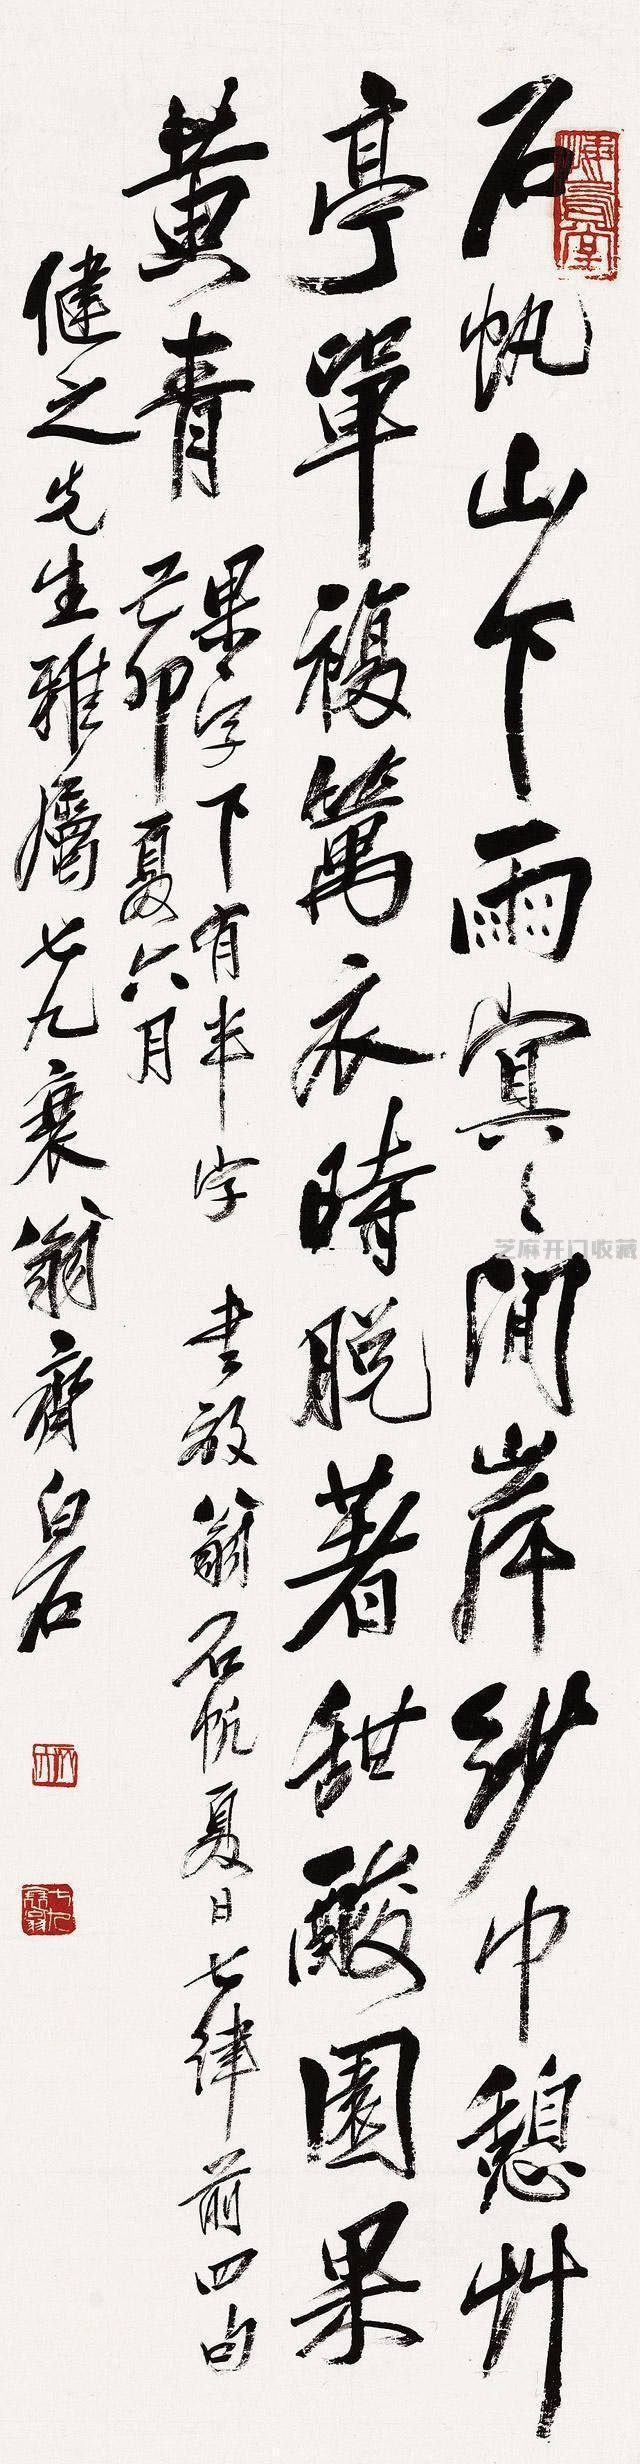 石帆山下雨冥〻閒岸紗巾憩艸
亭單複篝衣時脱著甜酸園果
黄青
果字下有半字 書放翁石帆夏日七律前四句
己卯夏六月
健之先生雅屬七九衰翁齊白石
芝麻开门收藏